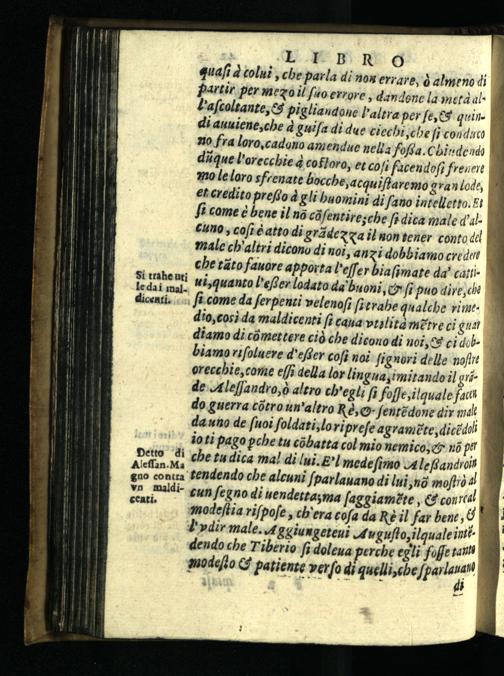 LIBRO
quaſi à colui, che parla di non errare, ò almeno di
partir per mezo il ſuo errore, dandone la metà al-
l'aſcoltante, & pigliandone l'altra per ſe, & quin-
di auuiene, che à guiſa di due ciechi, che ſi conduco
no fra loro, cadono amendue nella foſſa. Chiudendo
dũque l'orecchie à coſtoro, et coſi facendoſi frenere
mo le loro sfrenate bocche, acquiſtaremo gran lode,
et credito preſſo à gli huomini di ſano intelletto. Et
ſi come è bene il nõ cõſentire; che ſi dica male d'al-
cuno, coſi è atto di grãdezza il non tener conto del
male ch'altri dicono di noi, anzi dobbiamo credere
che tãto fauore apporta l'eſſer biaſimato da' catti-
ui, quanto l'eſſer lodato da' buoni, & ſi puo dire, che
Si trahe uti
le da i mal-
dicenti.
ſi come da ſerpenti velenoſi ſi trahe qualche rime-
dio, coſi da maldicenti ſi caua vtilità mẽtre ci guar
diamo di cõmettere ciò che dicono di noi, & ci dob-
biamo riſoluere d'eſſer coſi noi ſignori delle noſtre
orecchie, come eſſi della lor lingua, imitando il grã-
de Aleſſandro, ò altro ch'egli ſi foſſe, ilquale facen
do guerra cõtro un'altro Rè, & ſentẽdone dir male
da uno de ſuoi ſoldati, lo ripreſe agramẽte, dicẽdoli
io ti pago pche tu cõbatta col mio nemico, & nõ per
che tu dica mal di lui. E'l medeſimo Aleſſandro in
Detto di
Aleſſan. Ma
gno contra
vn maldi-
centi.
tendendo che alcuni ſparlauano di lui, nõ moſtrò al
cun ſegno di uendetta; ma ſaggiamẽte, & con real
modeſtia riſpoſe, ch'era coſa da Rè il far bene, &
l'vdir male. Aggiungeteui Auguſto, ilquale intẽ-
dendo che Tiberio ſi doleua perche egli foſſe tanto
modeſto & patiente verſo di quelli, che ſparlauano
di